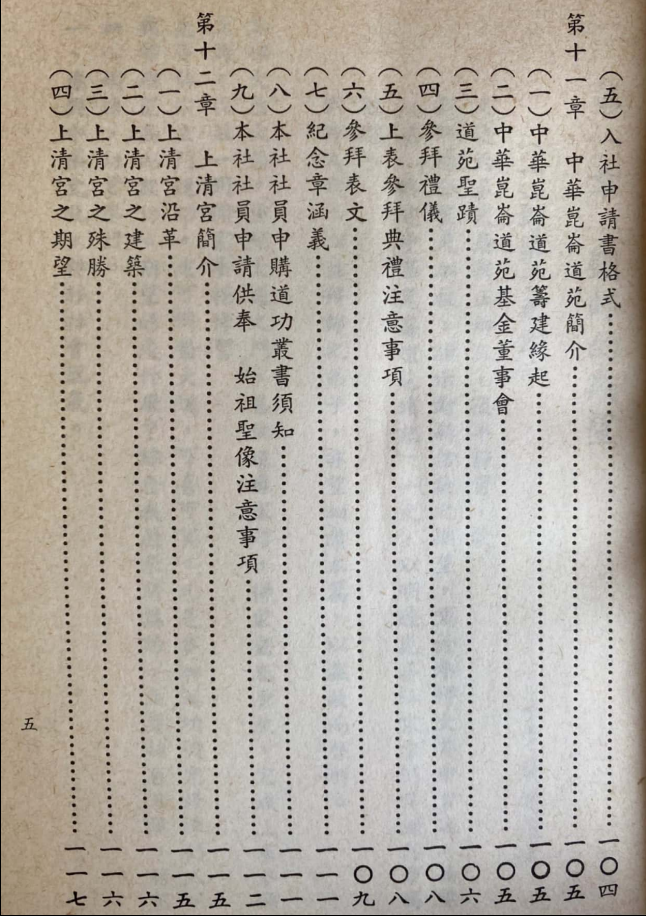 （五）入社申請書格式……一〇四
第十一章　中華崑崙道苑簡介……一〇五
（一）中華崑崙道苑籌建緣起……一〇五
（二）中華崑崙道苑基金董事會……一〇五
（三）道苑聖蹟……一〇六
（四）參拜禮儀……一〇八
（五）上表參拜典禮注意事項……一〇八
（六）參拜表文……一〇九
（七）紀念章涵義……一一一
（八）本社社員申購道功叢書須知……一一一
（九）本社社員申請供奉　始祖聖像注意事項……一一二
第十二章　上清宮簡介……一一五
（一）上清宮沿革……一一五
（二）上清宮之建築……一一六
（三）上清宮之殊勝……一一六
（四）上清宮之期望……一一七
五